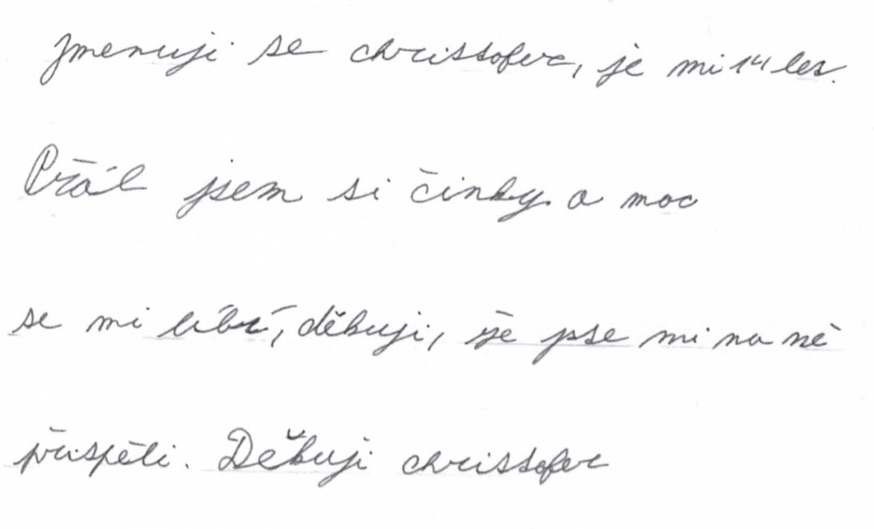 Jmenuji se christofer, je mi 14 let.
Přál jsem si činky a moc
se mi líbí, děkuji, že jste mi na ně
přispěli. Děkuji christofer